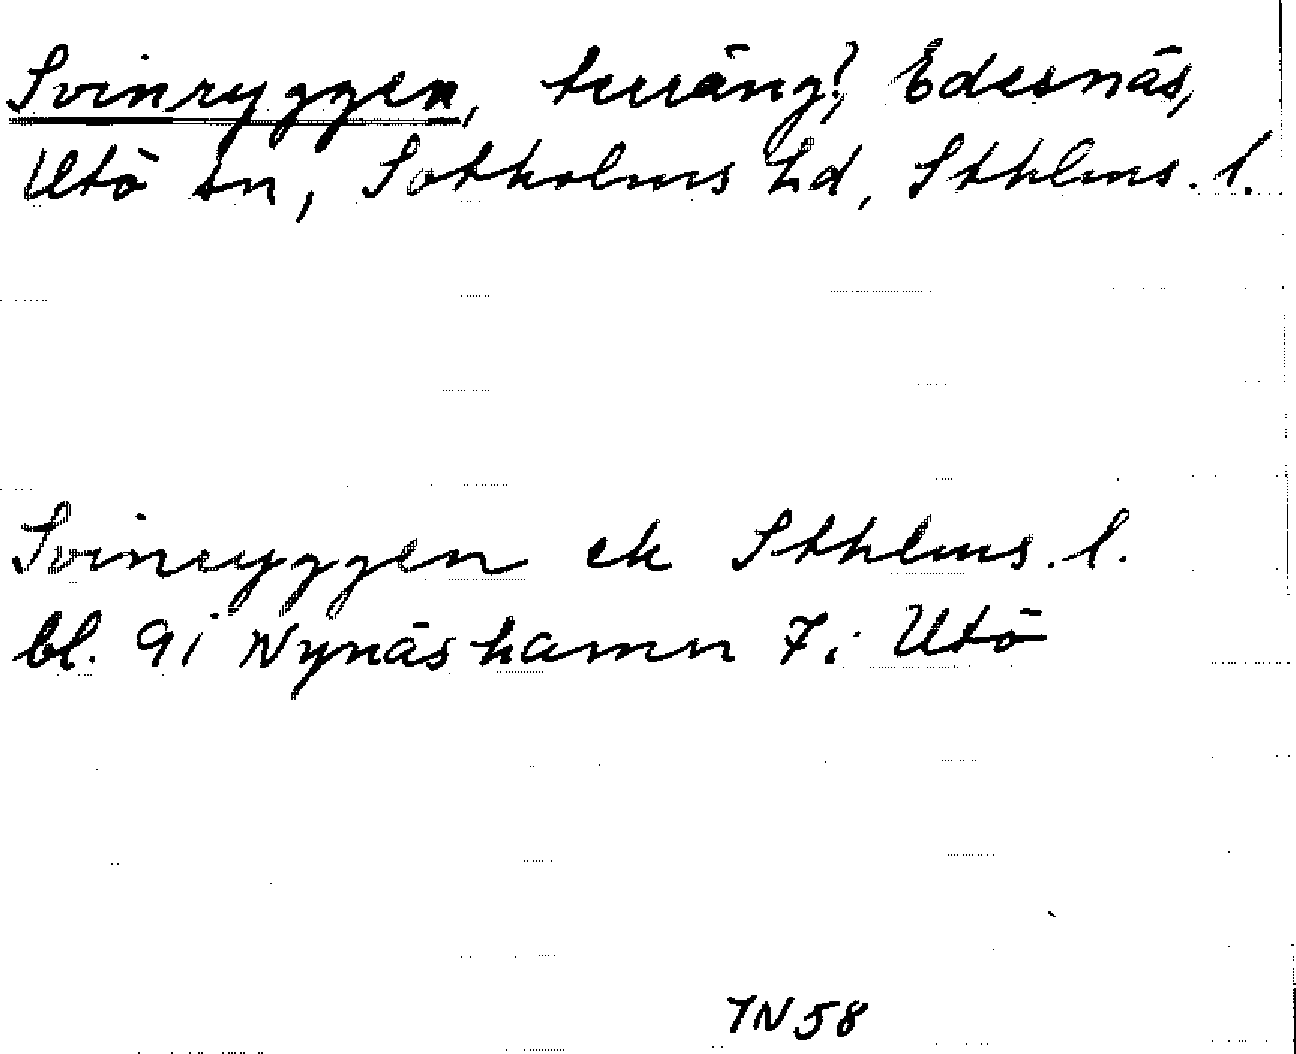 Svinryggen, terräng?, Edesnäs,
Utö sn, Sotholms hd, Sthlms. l.
Svinryggen ek Sthlms. l.
bl. 91 Nynäshamn 7i Utö
YN 58